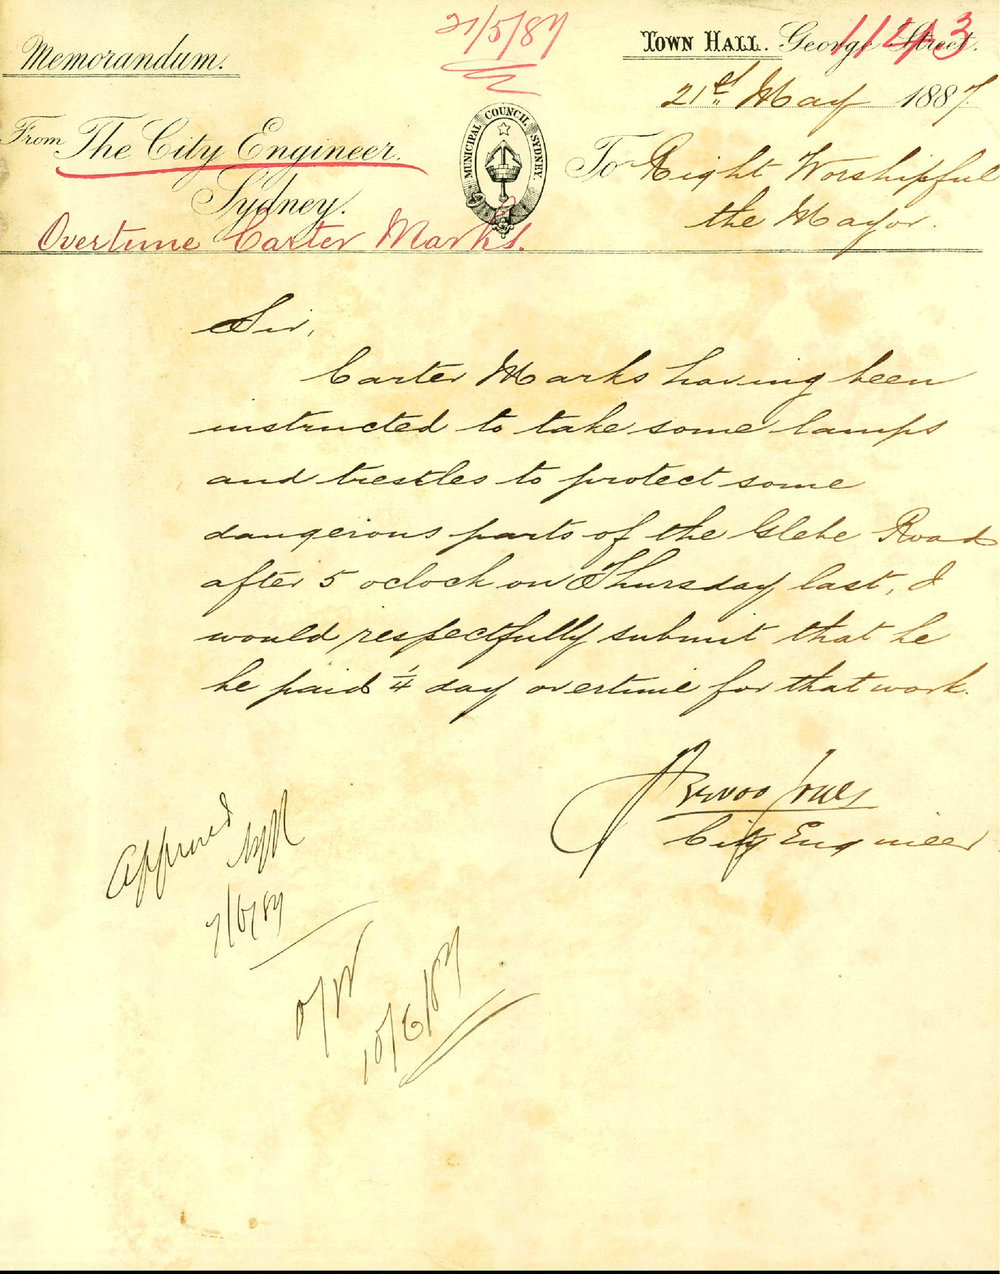 21/5/87
1143
Memorandum.
TOWN HALL. George Street.
21st May 1887.
From The City Engineer.
Sydney.
MUNICIPAL COUNCIL SYDNEY.
To Right Worshipful
the Mayor.
Overtime Carter Marks.
Sir,
Carter Marks having been
instructed to take some lamps
and trestles to protect some
dangerous parts of the Glebe Road
after 5 oclock on Thursday last, I
would respectfully submit that he
be paid 1/4 day overtime for that work.
City Engineer
Approved
7/6/87
10/6/87